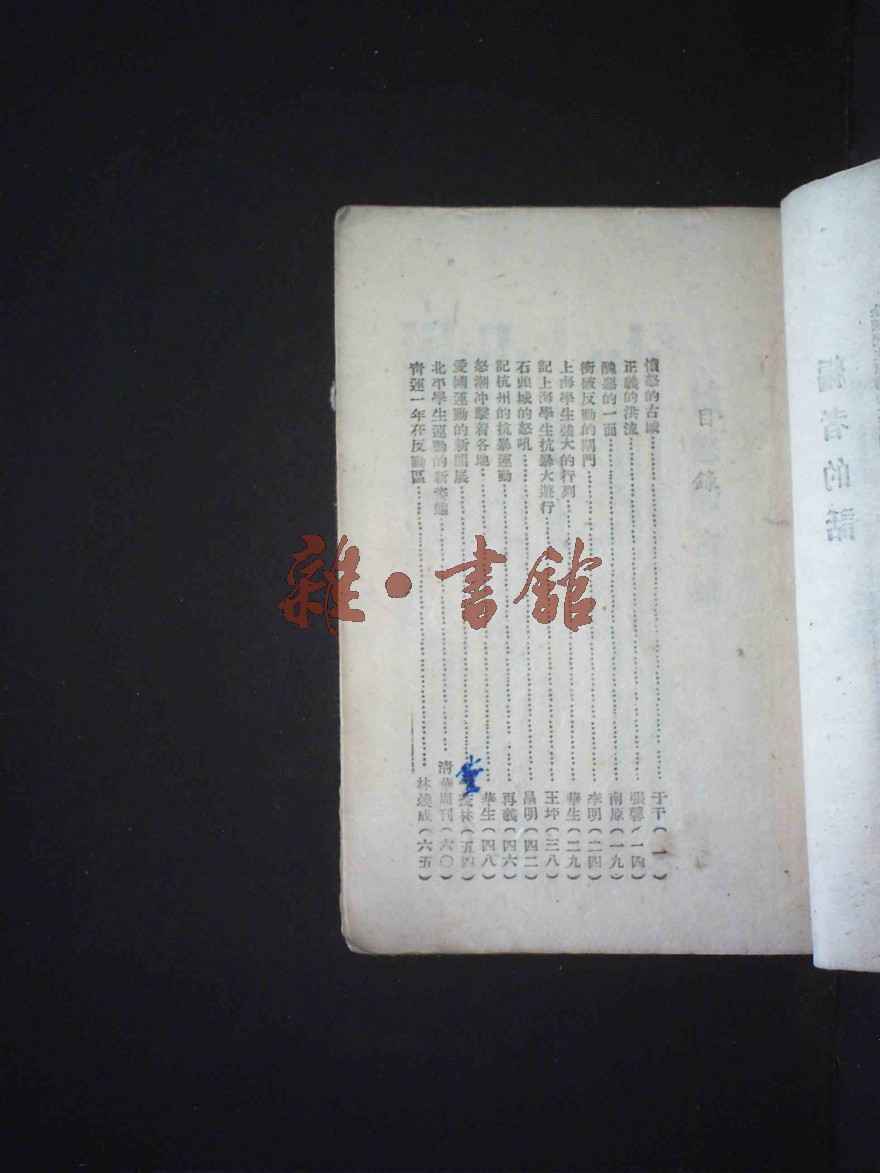 編者的話
目錄
憤怒的古城……于干(一)
正義的洪流……張馨(一四)
醜惡的一面……南原(一九)
衝破反動的閘門……李明(二四)
上海學生強大的行列……華生(二九)
記上海學生抗暴大遊行……王坪(三八)
石頭城的怒吼……昌明(四二)
記杭州的抗暴運動……再義(四六)
怒潮冲擊着各地……華生(四八)
愛國運動的新開展……長林(五四)
北平學生運動的新姿態……清華周刊(六〇)
青運一年在反動區……林煥成(六五)
雜·書館